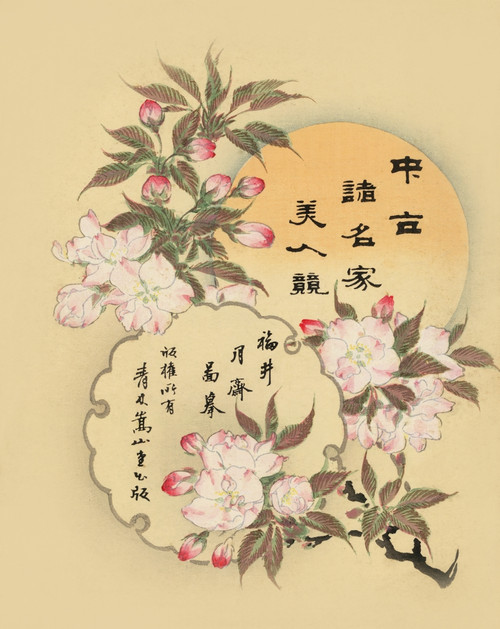 中古
諸名家
美人競
福井
月齋
啚摹
板權所有
青木嵩山堂出版